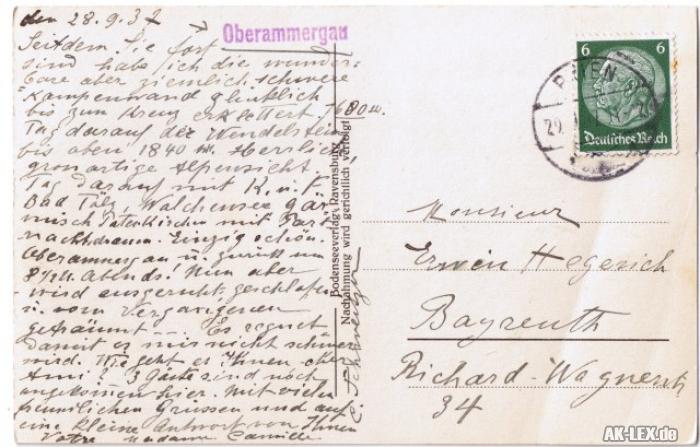 den 28.9.37
Seitdem Sie fort
sind habe ich die wunder-
bare aber ziemlich schwere
Kampenwand glücklich
bis zum Kreuz erklettert. 1600 m.
Tag darauf der Wendelstein
bis oben 1840 m. Herrlich,
grossartige Alpensicht,
Tag darauf mit K. u. F.
Bad Tölz, Walchensee Gar-
misch Partenkirchen mit
Einzig schön.
Oberammergau u. zurück um
8½ Uh. Abends! Nun aber
wird ausgeruht, geschlafen
u. vom Vergangenen
geträumt --- Es regnet
damit er mir nicht schwer
wird. Wie geht es Ihnen
Ami? 3 Gäste sind noch
angekommen hier. Mit vielen
freundlichen Grüssen und auf
eine kleine Antwort von Ihnen
Votre madame Camille
Oberammergau
Bodenseeverlag, Ravensburg
Nachahmung wird gerichtlich verfolgt
6 6
Deutsches Reich
PRIEN
29.
Monsieur
Erwin Hegerich
Bayreuth
Richard-Wagnerstr
34
AK-LEX.de